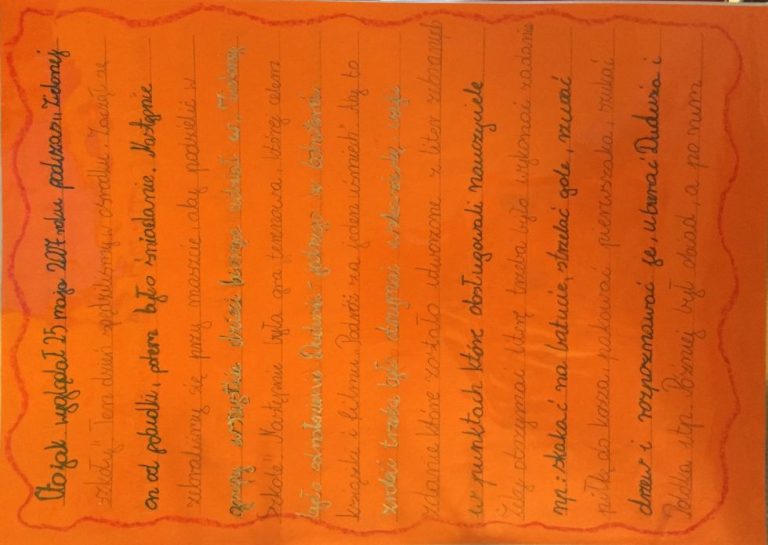 Oto jak wyglądał 25 maja 2017 roku podczas „Zielonej
szkoły". Ten dzień spędziliśmy w ośrodku. Zaczął się
on od pobudki, potem było śniadanie. Następnie
zebraliśmy się przy maszcie, aby podzielić w
grupy wszystkie dzieci biorące udział w „Zielonej
Szkole". Następnie była gra terenowa, której celem
było odnalezienie Dudusia - jednego z bohaterów
książki i filmu „Podróż za jeden uśmiech". Aby to
zrobić trzeba było otrzymać wskazówkę, czyli
zdanie które zostało utworzone z liter zebranych
w punktach które obsługowali nauczyciele
Żeby otrzymać literę trzeba było wykonać zadanie
np.: skakać na batucie, strzelać gole, rzucać
piłką do kosza, pakować pierwszaka, szukać
drzew i rozpoznawać je, ubierać Dudusia i
Poldka itp. Później był obiad, a po nim